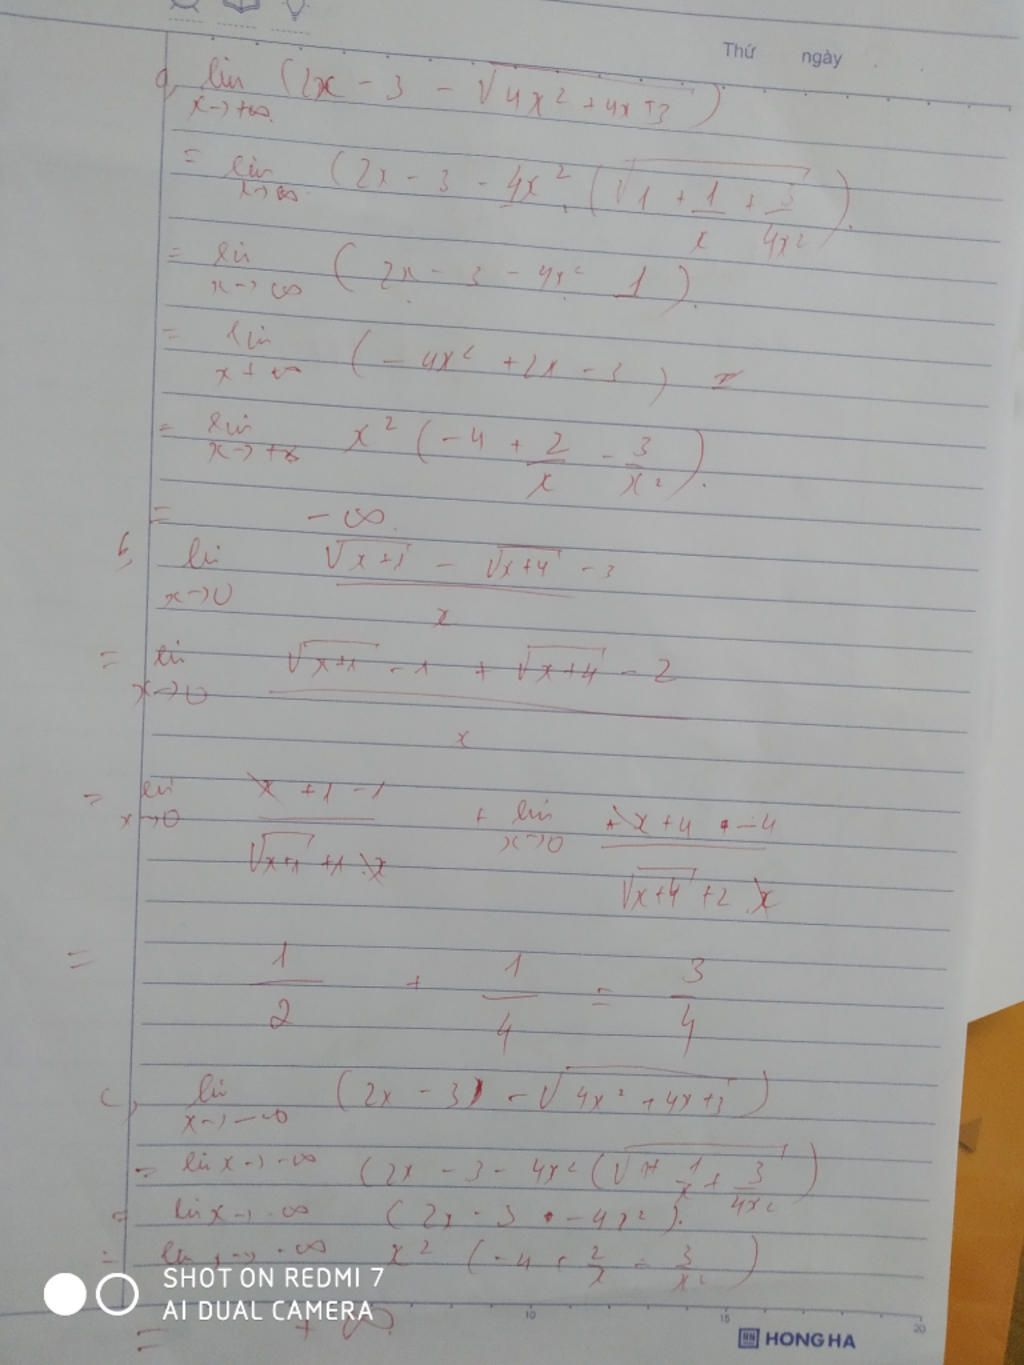 Thứ ngày
a, lim x→+∞ (2x - 3 - √(4x² + 4x + 3))
= lim x→∞ (2x - 3 - 4x² . (√(1 + 1/x + 3/4x²)).
= lim x→∞ (2x - 3 - 4x² 1).
= lim x→+∞ (-4x² + 2x - 3) =
= lim x→+∞ x² (-4 + 2/x - 3/x²).
= -∞.
b, lim x→0 (√(x+1) - √(x+4) - 3)/x
= lim x→0 (√(x+1) - 1 + √(x+4) - 2)/x
= lim x→0 (x + 1 - 1)/(√(x+1) + 1 . x) + lim x→0 (x + 4 - 4)/(√(x+4) + 2 . x)
= 1/2 + 1/4 = 3/4
c, lim x→-∞ (2x - 3) - √(4x² + 4x + 3))
= lim x→-∞ (2x - 3 - 4x² (√(1 + 1/x + 3/4x²))
= lim x→-∞ (2x - 3 - 4x²).
= lim x→-∞ x² (-4 + 2/x - 3/x²)
= + ∞.
SHOT ON REDMI 7
AI DUAL CAMERA
10 15 20
HH HONG HA